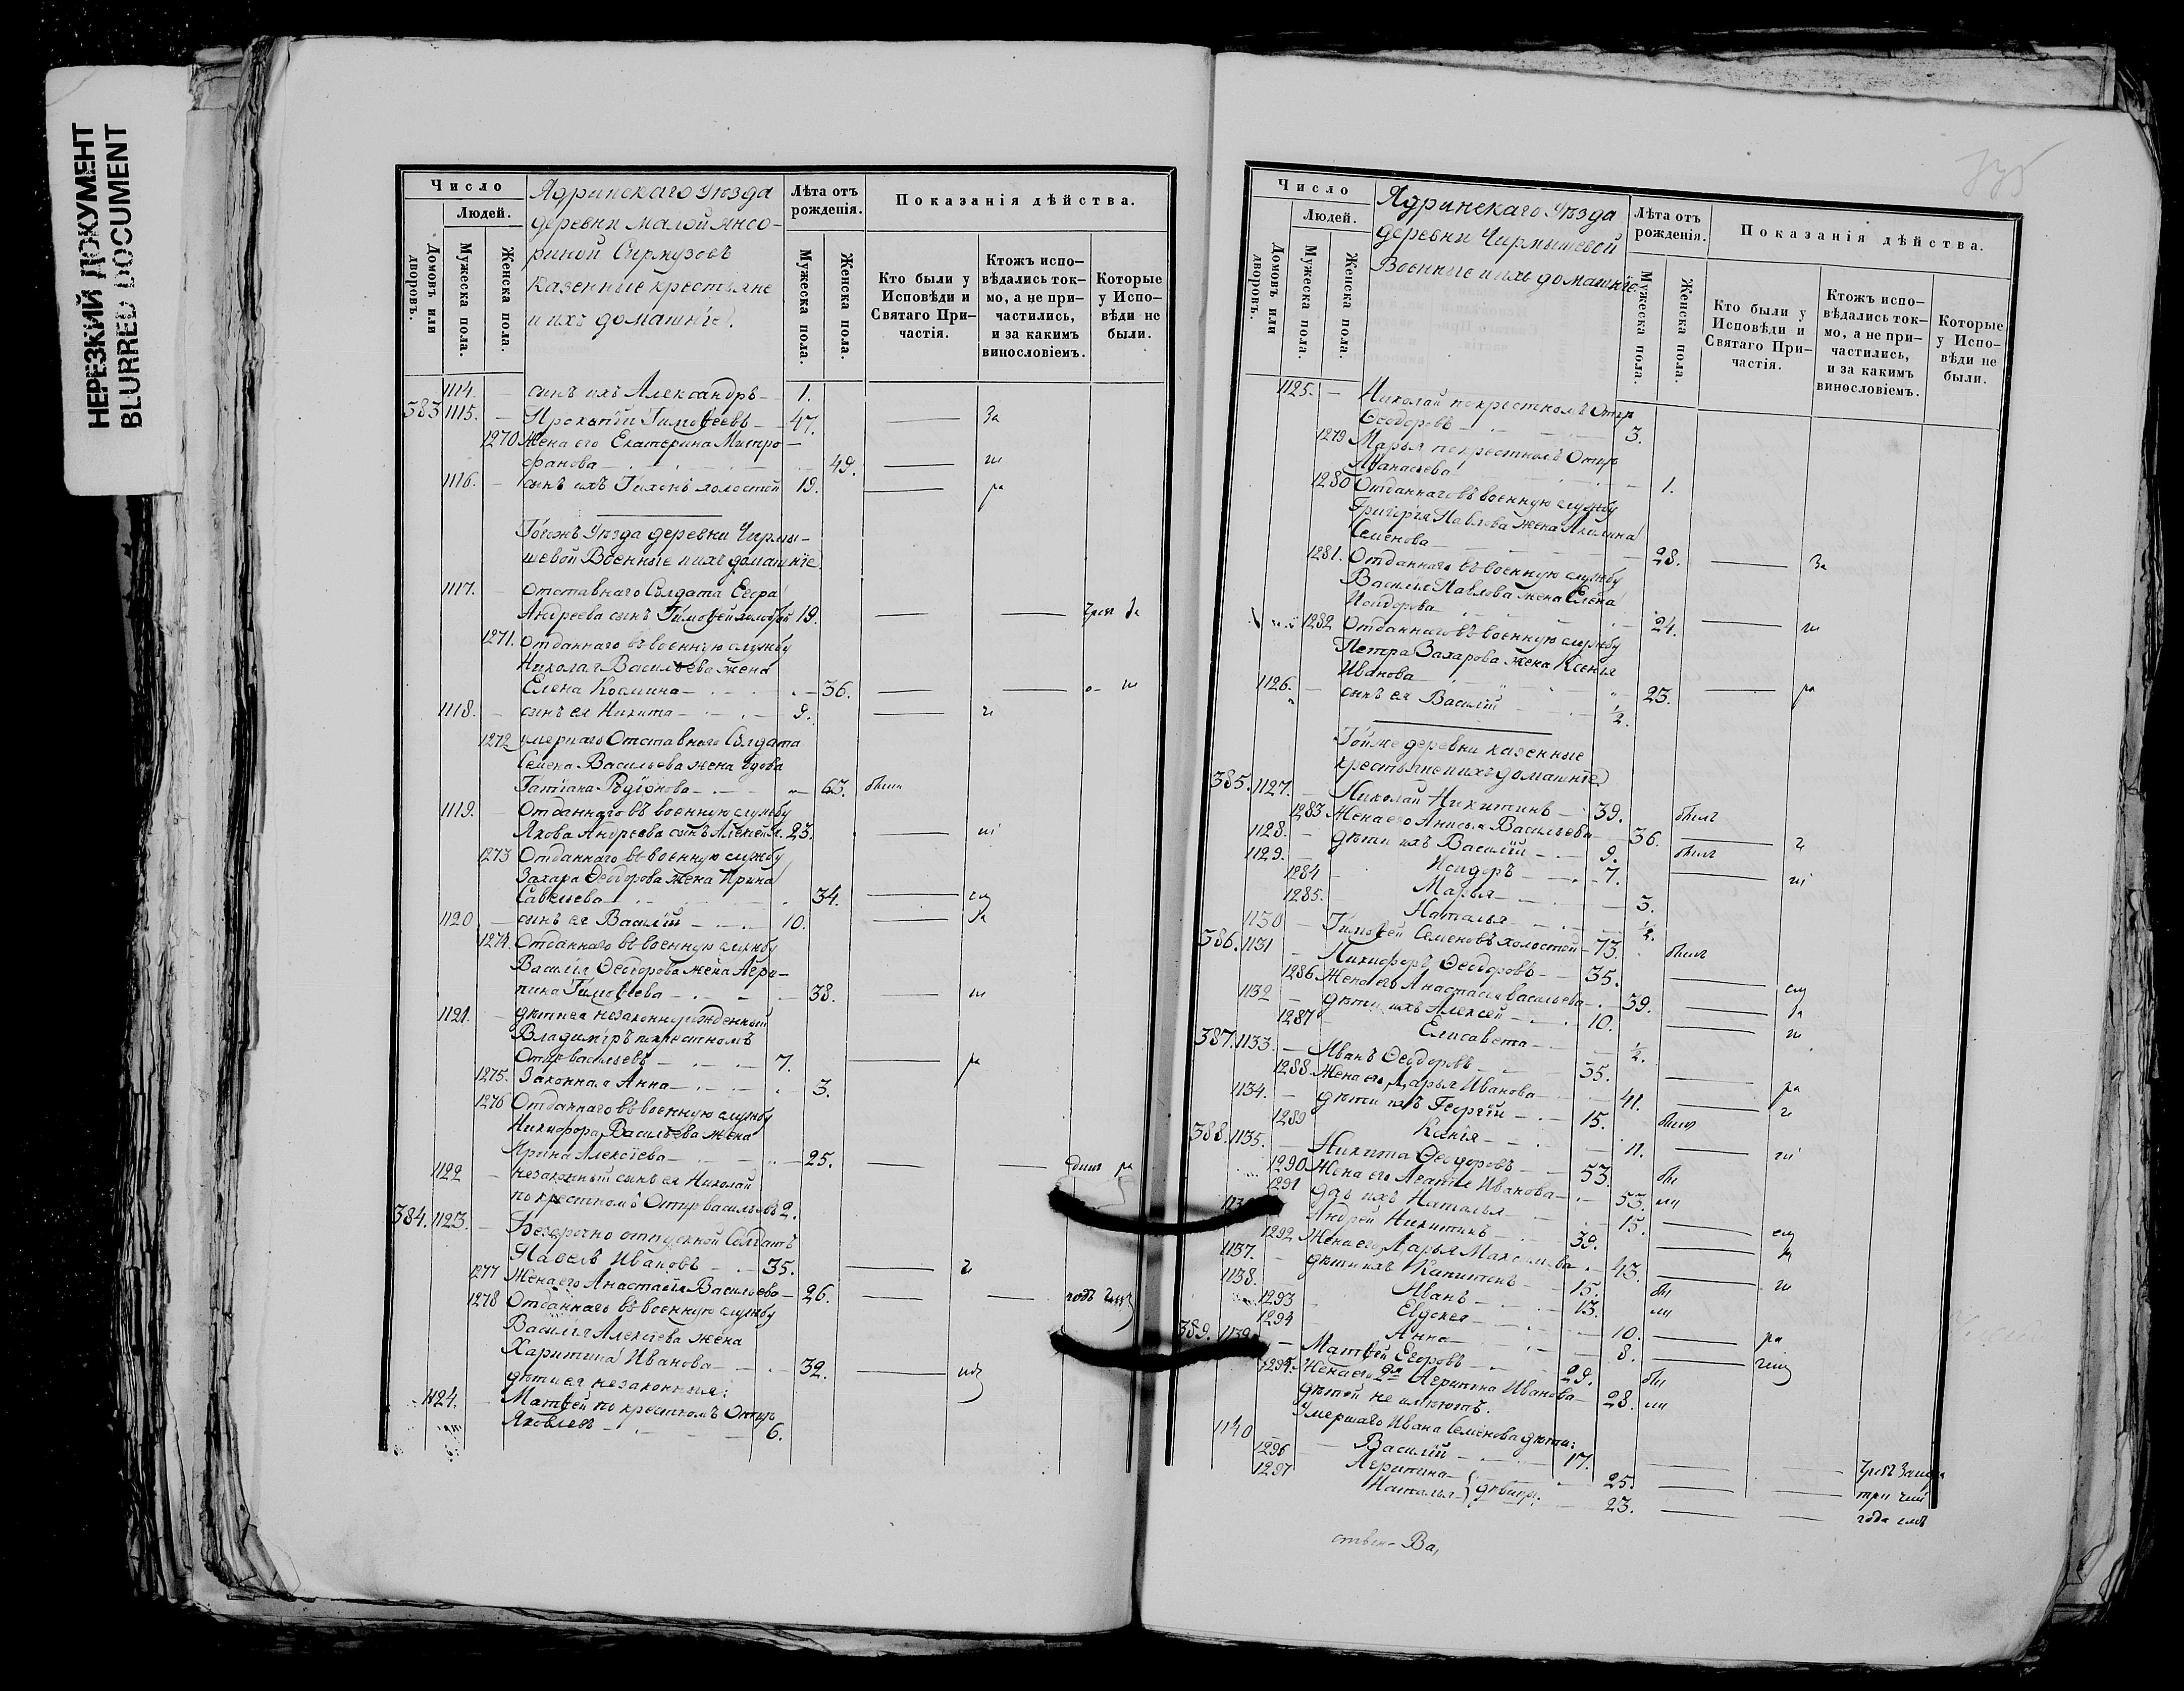 НЕРЕЗКИЙ ДОКУМЕНТ
BLURRED DOCUMENT
Число
Людей.
Домовъ или дворовъ.
Мужеска пола.
Женска пола.
Ядринскаго Уѣзда
деревни Малой Янсо-
риной
Казенные крестьяне
и ихъ домашніе.
Лѣта отъ рожденія.
Мужеска пола.
Женска пола.
Показанія дѣйства.
Кто были у Исповѣди и Святаго При-частія.
Ктожъ испо-вѣдались ток-мо, а не при-частились, и за какимъ винословіемъ.
Которые у Испо-вѣди не были.
1114. сынъ ихъ Александръ 1.
383 1115. Прокопій Тимоѳеевъ 47. За
1270 Жена его Екатерина Митро-
фанова 49.
1116. сынъ ихъ Тихонъ холостой 19. ра
Тогожъ Уѣзда деревни Чирмы-
шевой Военные и ихъ домашніе
1117. Отставнаго Солдата Егора
Андреева сынъ Тимоѳей холостой 19.
1271. Отданнаго въ военную службу
Николая Васильева жена
Елена Космина 36.
1118. сынъ ея Никита 9.
1272 умершаго Отставнаго Солдата
Семена Васильева жена вдова
Татіана Родіонова 63. была
1119. Отданнаго въ военную службу
Якова Андреева сынъ Алексей 23.
1273 Отданнаго въ военную службу
Захара Ѳеодорова жена Ирина
Савельева 34.
1120 сынъ ея Василій 10.
1274. Отданнаго въ военную службу
Василія Ѳеодорова жена Агри-
пина Тимоѳеева 38.
1121. дѣти ея незаконнорожденный
Владиміръ по крестномъ
Отцѣ Васильевъ 7. ра
1275. Законная Анна 3.
1276 Отданнаго въ военную службу
Никифора Васильева жена
Ирина Алексіева 25.
1122 незаконный сынъ ея Николай
по крестномъ Отцѣ Васильевъ 2.
384. 1123. Безсрочно отпускной Солдатъ
Павелъ Ивановъ 35.
1277 Жена его Анастасія Васильева 26.
1278 Отданнаго въ военную службу
Василія Алексіева жена
Харитина Иванова 32.
дѣти ея незаконныя:
1124. Матѳей по крестномъ Отцѣ
Яковлевъ 6.
Число
Людей.
Домовъ или дворовъ.
Мужеска пола.
Женска пола.
Ядринскаго Уѣзда
деревни Чирмышевой
Военные и ихъ домашніе
Лѣта отъ рожденія.
Мужеска пола.
Женска пола.
Показанія дѣйства.
Кто были у Исповѣди и Святаго При-частія.
Ктожъ испо-вѣдались ток-мо, а не при-частились, и за какимъ винословіемъ.
Которые у Испо-вѣди не были.
1125. Николай по крестномъ Отцѣ
Ѳеодоровъ 3.
1279 Марья по крестномъ Отцѣ
Аѳанасьева 1.
1280 Отданнаго въ военную службу
Григорія Павлова жена Акилина
Семенова 28. За
1281. Отданнаго въ военную службу
Василія Павлова жена Елена
Исидорова 24.
1282 Отданнаго въ военную службу
Петра Захарова жена Ксенія
Иванова 23. ра
1126. сынъ ея Василій ½.
Той же деревни казенные
крестьяне и ихъ домашніе
385. 1127. Николай Никитинъ 39. былъ
1283 Жена его Анисья Васильева 36.
1128. дѣти ихъ Василій 9. былъ
1129. Исидоръ 7.
1284 Марья 3.
1285. Наталья ½.
1130 Тимоѳей Семеновъ холостой 73. былъ
386. 1131 Никифоръ Ѳеодоровъ 35.
1286 Жена его Анастасія Васильева 39.
1132 дѣти ихъ Алексей 10.
1287 Елисавета ½.
387. 1133. Иванъ Ѳеодоровъ 35. ра
1288 Жена его Дарья Иванова 41.
1134. дѣти ихъ Георгій 15.
1289 Ксенія 11.
388. 1135. Никита Ѳеодоровъ 53.
1290 Жена его Агапія Иванова 53.
1291 дочь ихъ Наталья 15.
Андрей Никитинъ 39.
1292 Жена его Дарья Максимова 43.
1137. дѣти ихъ Капитонъ 15.
1138. Иванъ 13.
1293 Евдокея 10. ра
1294 Анна 8.
389. 1139 Матѳей Егоровъ 29.
1295. Жена его Агрипина Иванова 28.
дѣтей не имѣютъ.
Умершаго Ивана Семенова дѣти:
1140 Василій 17.
1296 Агрипина 25.
1297 Наталья } дѣвицы. 23.